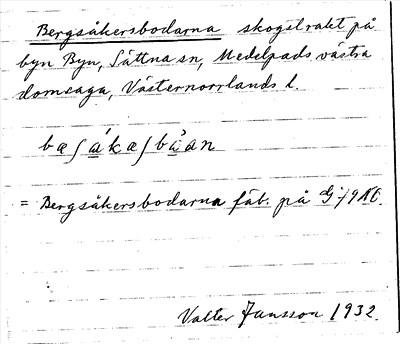 Bergsåkersbodarna skogstrakt på
byn Byn, Sättna sn, Medelpads västra
domsaga, Västernorrlands l.
bæʃákæʃbùan
= Bergsåkersbodarna fäb. på G:/9 NO.
Valter Jansson 1932.